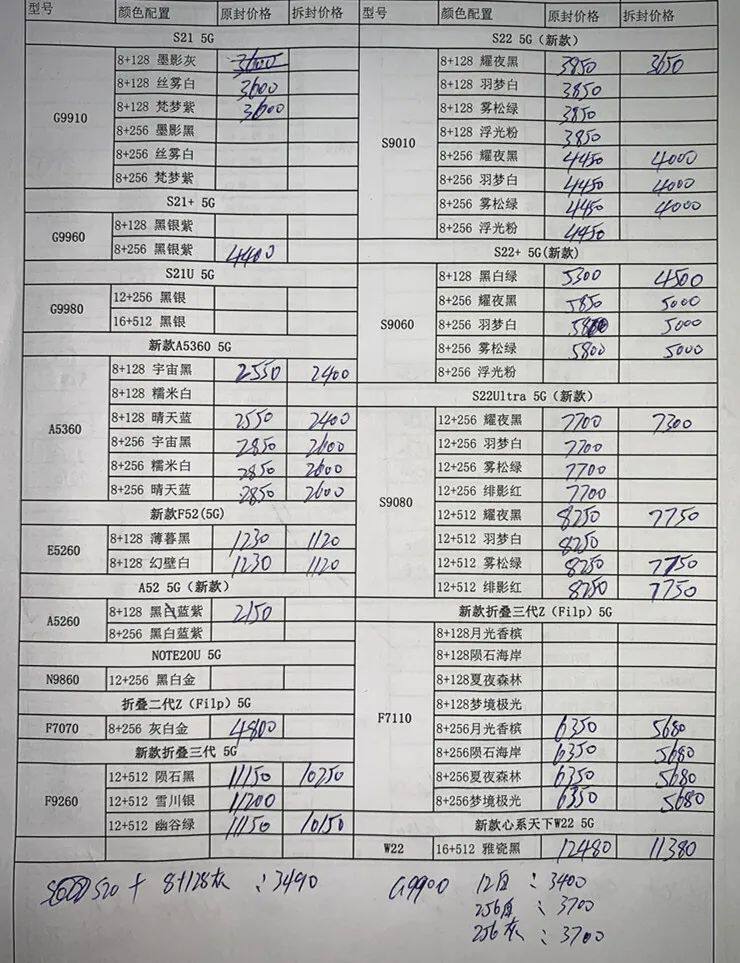 型号 颜色配置 原封价格 拆封价格
S21 5G
G9910
8+128 墨影灰 3600
8+128 丝雾白 3600
8+128 梵梦紫 3600
8+256 墨影黑
8+256 丝雾白
8+256 梵梦紫
S21+ 5G
G9960
8+128 黑银紫
8+256 黑银紫 4400
S21U 5G
G9980
12+256 黑银
16+512 黑银
新款A5360 5G
A5360
8+128 宇宙黑 2550 2400
8+128 糯米白
8+128 晴天蓝 2550 2400
8+256 宇宙黑 2850 2600
8+256 糯米白 2850 2600
8+256 晴天蓝 2850 2600
新款F52(5G)
E5260
8+128 薄暮黑 1230 1120
8+128 幻壁白 1230 1120
A52 5G（新款）
A5260
8+128 黑白蓝紫 2150
8+256 黑白蓝紫
NOTE20U 5G
N9860 12+256 黑白金
折叠二代Z（Filp）5G
F7070 8+256 灰白金 4800
新款折叠三代 5G
F9260
12+512 陨石黑 11150 10250
12+512 雪川银 11200
12+512 幽谷绿 11150 10150
型号 颜色配置 原封价格 拆封价格
S22 5G（新款）
S9010
8+128 耀夜黑 3850 3650
8+128 羽梦白 3850
8+128 雾松绿 3850
8+128 浮光粉 3850
8+256 耀夜黑 4450 4000
8+256 羽梦白 4450 4000
8+256 雾松绿 4450 4000
8+256 浮光粉 4450
S22+ 5G(新款)
S9060
8+128 黑白绿 5300 4500
8+256 耀夜黑 5850 5000
8+256 羽梦白 5000
8+256 雾松绿 5800 5000
8+256 浮光粉
S22Ultra 5G（新款）
S9080
12+256 耀夜黑 7700 7300
12+256 羽梦白 7700
12+256 雾松绿 7700
12+256 绯影红 7700
12+512 耀夜黑 8250 7750
12+512 羽梦白 8250
12+512 雾松绿 8250 7750
12+512 绯影红 8250 7750
新款折叠三代Z（Filp）5G
F7110
8+128月光香槟
8+128陨石海岸
8+128夏夜森林
8+128梦境极光
8+256月光香槟 6350 5680
8+256陨石海岸 6350 5680
8+256夏夜森林 6350 5680
8+256梦境极光 6350 5680
新款心系天下W22 5G
W22 16+512 雅瓷黑 12480 11380
S20+ 8+128灰：3490
G9900 12白：3400
256白：3700
256灰：3700